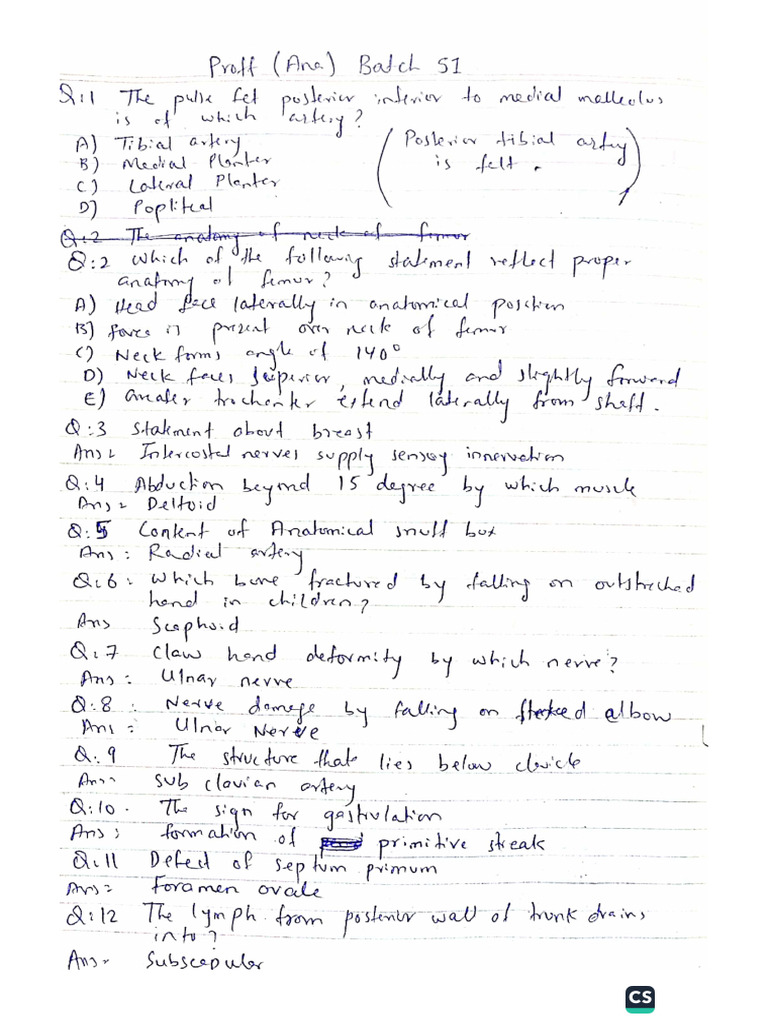 Proff (Ana) Batch 51
Q:1 The pulse felt posterior inferior to medial malleolus
is of which artery?
A) Tibial artery
B) Medial Planter
C) Lateral Planter
D) Popliteal
(Posterior tibial artery
is felt.)
Q:2 The anatomy of neck of femur
Q:2 which of the following statement reflect proper
anatomy of femur?
A) Head face laterally in anatomical position
B) fovea is present over neck of femur
C) Neck forms angle of 140°
D) Neck faces superior, medially and slightly forward
E) Greater trochanter extend laterally from shaft.
Q:3 Statement about breast
Ans: Intercostal nerves supply sensory innervation
Q:4 Abduction beyond 15 degree by which muscle
Ans = Deltoid
Q:5 Content of Anatomical snuff box
Ans: Radial artery
Q:6: which bone fractured by falling on outstreched
hand in children?
Ans Scaphoid
Q:7 Claw hand deformity by which nerve?
Ans: Ulnar nerve
Q:8: Nerve damage by falling on flexed elbow
Ans = Ulnar Nerve
Q:9 The structure that lies below clavicle
Ans= Sub clavian artery
Q:10. The sign for gastrulation
Ans: formation of primitive streak
Q:11 Defect of septum primum
Ans= Foramen ovale
Q:12 The lymph from posterior wall of trunk drains
into?
Ans= Subscapular
CS